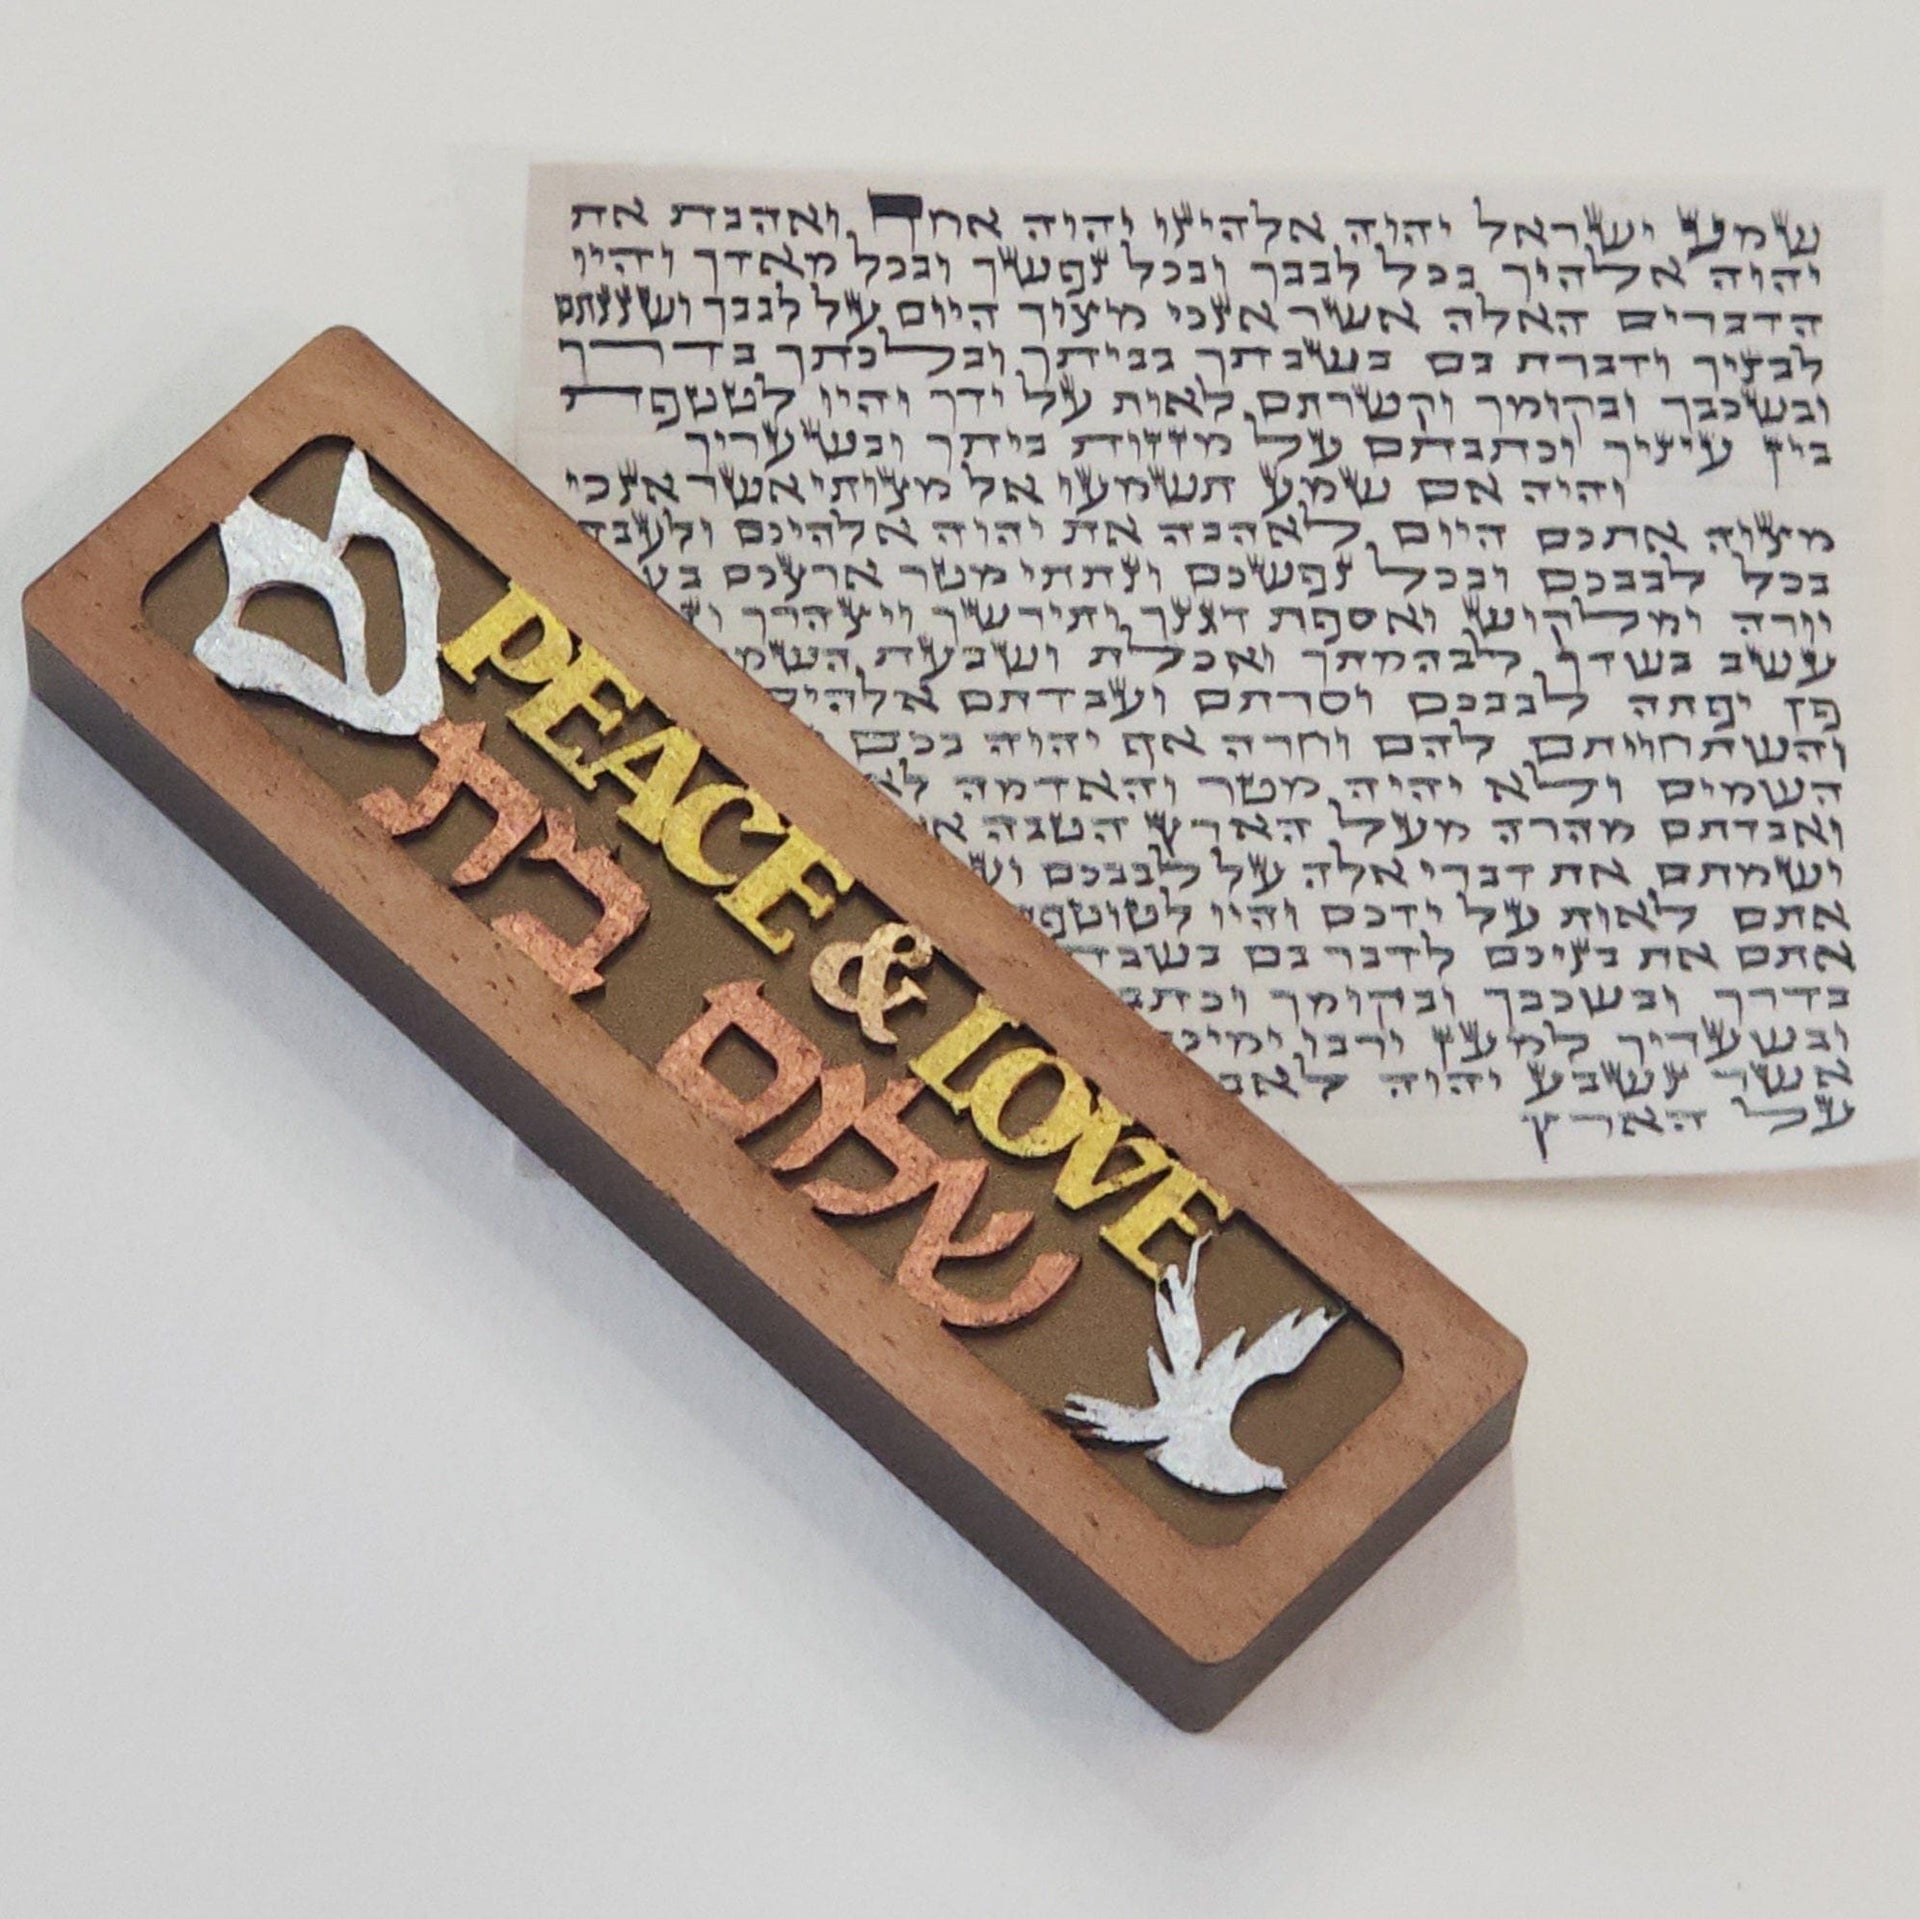 ש
PEACE & LOVE
שלום בית
שמע ישראל יהוה אלהינו יהוה אחד ואהבת את
יהוה אלהיך בכל לבבך ובכל נפשך ובכל מאדך והיו
הדברים האלה אשר אנכי מצוך היום על לבבך ושננתם
לבניך ודברת בם בשבתך בביתך ובלכתך בדרך
ובשכבך ובקומך וקשרתם לאות על ידך והיו לטטפת
בין עיניך וכתבתם על מזזות ביתך ובשעריך
והיה אם שמע תשמעו אל מצותי אשר אנכי
מצוה אתכם היום לאהבה את יהוה אלהיכם ולעבד
בכל לבבכם ובכל נפשכם ונתתי מטר ארצכם
יורה ומלקוש ואספת דגנך ותירשך ויצהרך
עשב בשדך לבהמתך ואכלת ושבעת השמ
פן יפתה לבבכם וסרתם ועבדתם אלהים
והשתחויתם להם וחרה אף יהוה בכם
השמים ולא יהיה מטר והאדמה לא
ואבדתם מהרה מעל הארץ הטבה
ושמתם את דברי אלה על לבבכם
אתם לאות על ידכם והיו לטוטפ
אתם את בניכם לדבר בם בשבת
בדרך ובשכבך ובקומך וכתב
ובשעריך למען ירבו ימיכ
אשר נשבע יהוה לאב
על הארץ